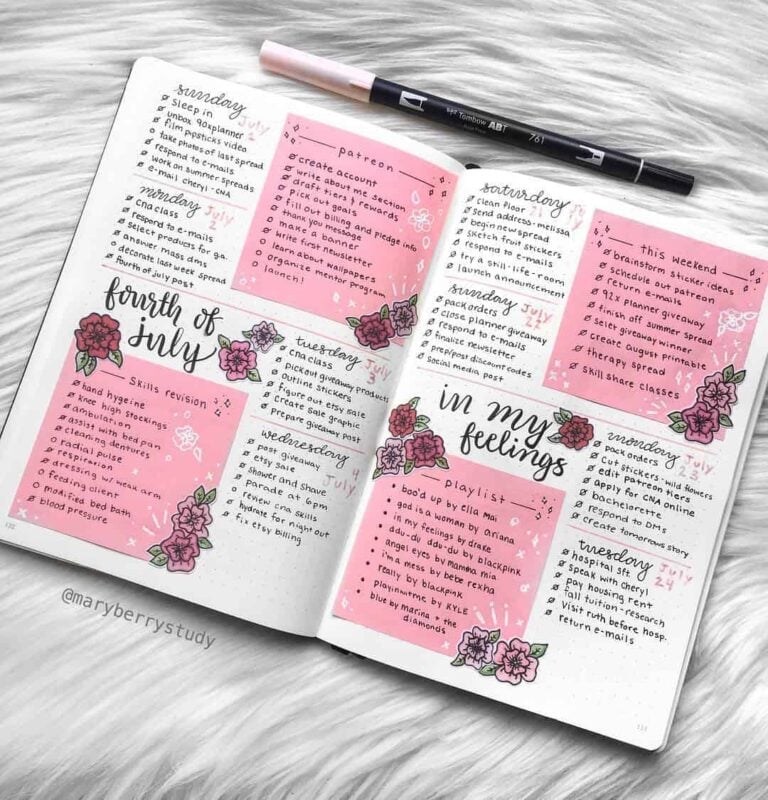 Tombow ABT
761
sunday
July
sleep in
unbox 90xplanner
film pipsticks video
take photos of last spread
respond to e-mails
work on summer spreads
e-mail cheryl - CNA
monday
July
2
cna class
respond to e-mails
select products for ga.
answer mass dms
decorate last week spread
fourth of july post
patreon
create account
write about me section
draft tiers & rewards
pick out goals
fill out billing and pledge info
thank you message
make a banner
write first newsletter
learn about wallpapers
organize mentor program
launch!
fourth of
july
Skills revision
hand hygeine
knee high stockings
ambulation
assist with bed pan
cleaning dentures
radial pulse
respiration
dressing w/ weak arm
feeding client
modified bed bath
blood pressure
tuesday
July
3
cna class
pick out giveaway products
outline stickers
figure out etsy sale
create sale graphic
prepare giveaway post
wednesday
4
July
post giveaway
etsy sale
shower and shave
parade at 6pm
review cna skills
hydrate for night out
fix etsy billing
132
saturday
21
clean floor
send address - melissa
begin new spread
sketch fruit stickers
respond to e-mails
try a skill - life - room
launch announcement
sunday
July
22
pack orders
close planner giveaway
respond to e-mails
finalize newsletter
prep/post discount codes
social media post
this weekend
brainstorm sticker ideas
schedule out patreon
return e-mails
92x planner giveaway
finish off summer spread
selet giveaway winner
create august printable
therapy spread
skill share classes
in my
feelings
playlist
boo'd up by ella mai
god is a woman by ariana
in my feelings by drake
ddu-du ddu-du by blackpink
angel eyes by mamma mia
i'm a mess by bebe rexha
really by blackpink
playinwitme by KYLE
blue by marina + the
diamonds
monday
July
23
pack orders
cut stickers - wild flowers
edit patreon tiers
apply for CNA online
bachelorette
respond to DMs
create tomorrows story
tuesday
July
24
hospital sft
speak with cheryl
pay housing rent
fall tuition - research
visit ruth before hosp.
return e-mails
133
@maryberrystudy